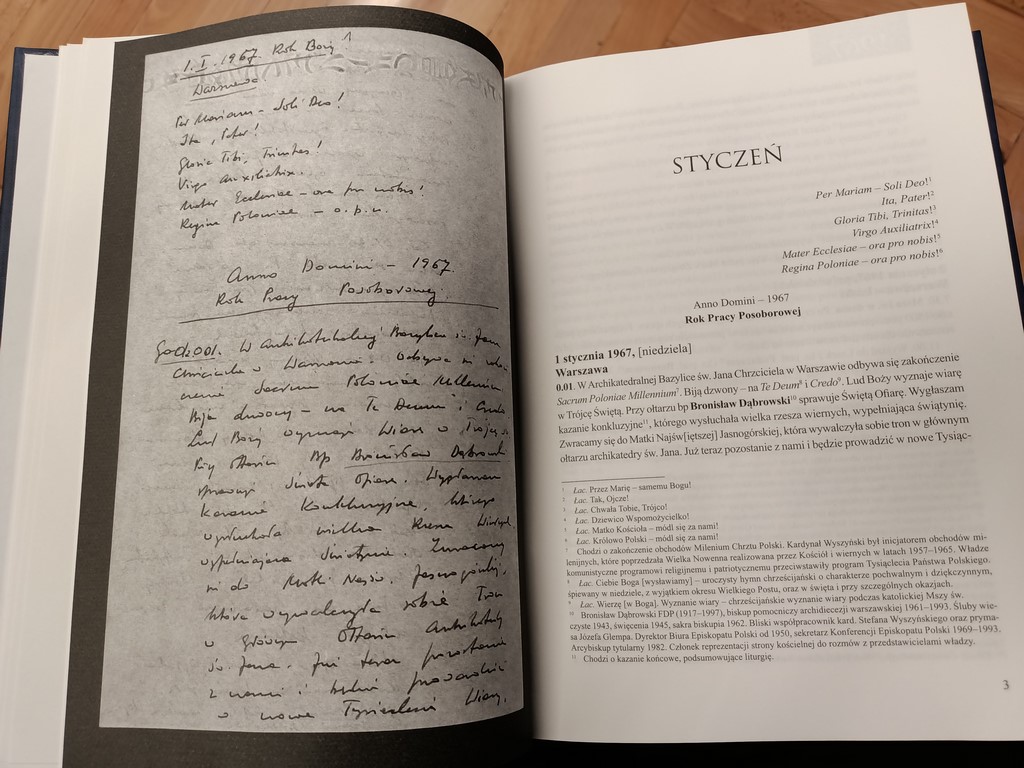 1. I. 1967. Rok Boży 1
Warszawa
Per Mariam – Soli Deo!
Ita, Pater!
Gloria Tibi, Trinitas!
Virgo Auxiliatrix.
Mater Ecclesiae – ora pro nobis!
Regina Poloniae – o.p.n.
Anno Domini – 1967.
Rok Pracy Posoborowej.
Godz. 001. W Archikatedralnej Bazylice św. Jana
Chrzciciela w Warszawie. Odbywa się
Sacrum Poloniae Millennium
Biją dzwony – na Te Deum i Credo
Lud Boży wyznaje Wiarę w Trójcę
Przy ołtarzu Bp Bronisław Dąbrowski
sprawuje Świętą Ofiarę. Wygłaszam
Kazanie Konkluzyjne, którego
wysłuchała wielka Rzesza Wiernych
wypełniająca Świątynię. Zwracamy
się do Matki Najśw. Jasnogórskiej,
która wywalczyła sobie Tron
w głównym Ołtarzu Archikatedry
św. Jana. Już teraz pozostanie
z nami i będzie prowadzić
w nowe Tysiąclecie Wiary.
STYCZEŃ
Per Mariam – Soli Deo!1
Ita, Pater!2
Gloria Tibi, Trinitas!3
Virgo Auxiliatrix!4
Mater Ecclesiae – ora pro nobis!5
Regina Poloniae – ora pro nobis!6
Anno Domini – 1967
Rok Pracy Posoborowej
1 stycznia 1967, [niedziela]
Warszawa
0.01. W Archikatedralnej Bazylice św. Jana Chrzciciela w Warszawie odbywa się zakończenie
Sacrum Poloniae Millennium7. Biją dzwony – na Te Deum8 i Credo9. Lud Boży wyznaje wiarę
w Trójcę Świętą. Przy ołtarzu bp Bronisław Dąbrowski10 sprawuje Świętą Ofiarę. Wygłaszam
kazanie konkluzyjne11, którego wysłuchała wielka rzesza wiernych, wypełniająca świątynię.
Zwracamy się do Matki Najśw[iętszej] Jasnogórskiej, która wywalczyła sobie tron w głównym
ołtarzu archikatedry św. Jana. Już teraz pozostanie z nami i będzie prowadzić w nowe Tysiąc-
1 Łac. Przez Marię – samemu Bogu!
2 Łac. Tak, Ojcze!
3 Łac. Chwała Tobie, Trójco!
4 Łac. Dziewico Wspomożycielko!
5 Łac. Matko Kościoła – módl się za nami!
6 Łac. Królowo Polski – módl się za nami!
7 Chodzi o zakończenie obchodów Milenium Chrztu Polski. Kardynał Wyszyński był inicjatorem obchodów mi-
lenijnych, które poprzedzała Wielka Nowenna realizowana przez Kościół i wiernych w latach 1957–1965. Władze
komunistyczne programowi religijnemu i patriotycznemu przeciwstawiły program Tysiąclecia Państwa Polskiego.
8 Łac. Ciebie Boga [wysławiamy] – uroczysty hymn chrześcijański o charakterze pochwalnym i dziękczynnym,
śpiewany w niedziele, z wyjątkiem okresu Wielkiego Postu, oraz w święta i przy szczególnych okazjach.
9 Łac. Wierzę [w Boga]. Wyznanie wiary – chrześcijańskie wyznanie wiary podczas katolickiej Mszy św.
10 Bronisław Dąbrowski FDP (1917–1997), biskup pomocniczy archidiecezji warszawskiej 1961–1993. Śluby wie-
czyste 1943, święcenia 1945, sakra biskupia 1962. Bliski współpracownik kard. Stefana Wyszyńskiego oraz pryma-
sa Józefa Glempa. Dyrektor Biura Episkopatu Polski od 1950, sekretarz Konferencji Episkopatu Polski 1969–1993.
Arcybiskup tytularny 1982. Członek reprezentacji strony kościelnej do rozmów z przedstawicielami władzy.
11 Chodzi o kazanie końcowe, podsumowujące liturgię.
3